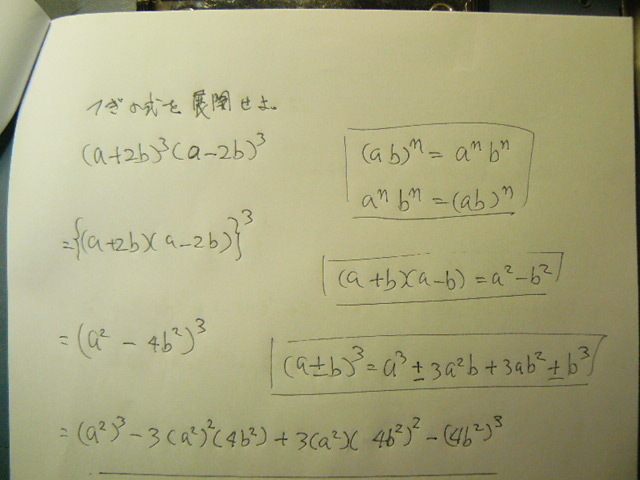 つぎの式を展開せよ。
(a+2b)³(a-2b)³
(ab)ⁿ = aⁿbⁿ
aⁿbⁿ = (ab)ⁿ
={(a+2b)(a-2b)}³
(a+b)(a-b) = a²-b²
= (a² - 4b²)³
(a±b)³ = a³ ± 3a²b + 3ab² ± b³
= (a²)³ - 3(a²)²(4b²) + 3(a²)(4b²)² - (4b²)³